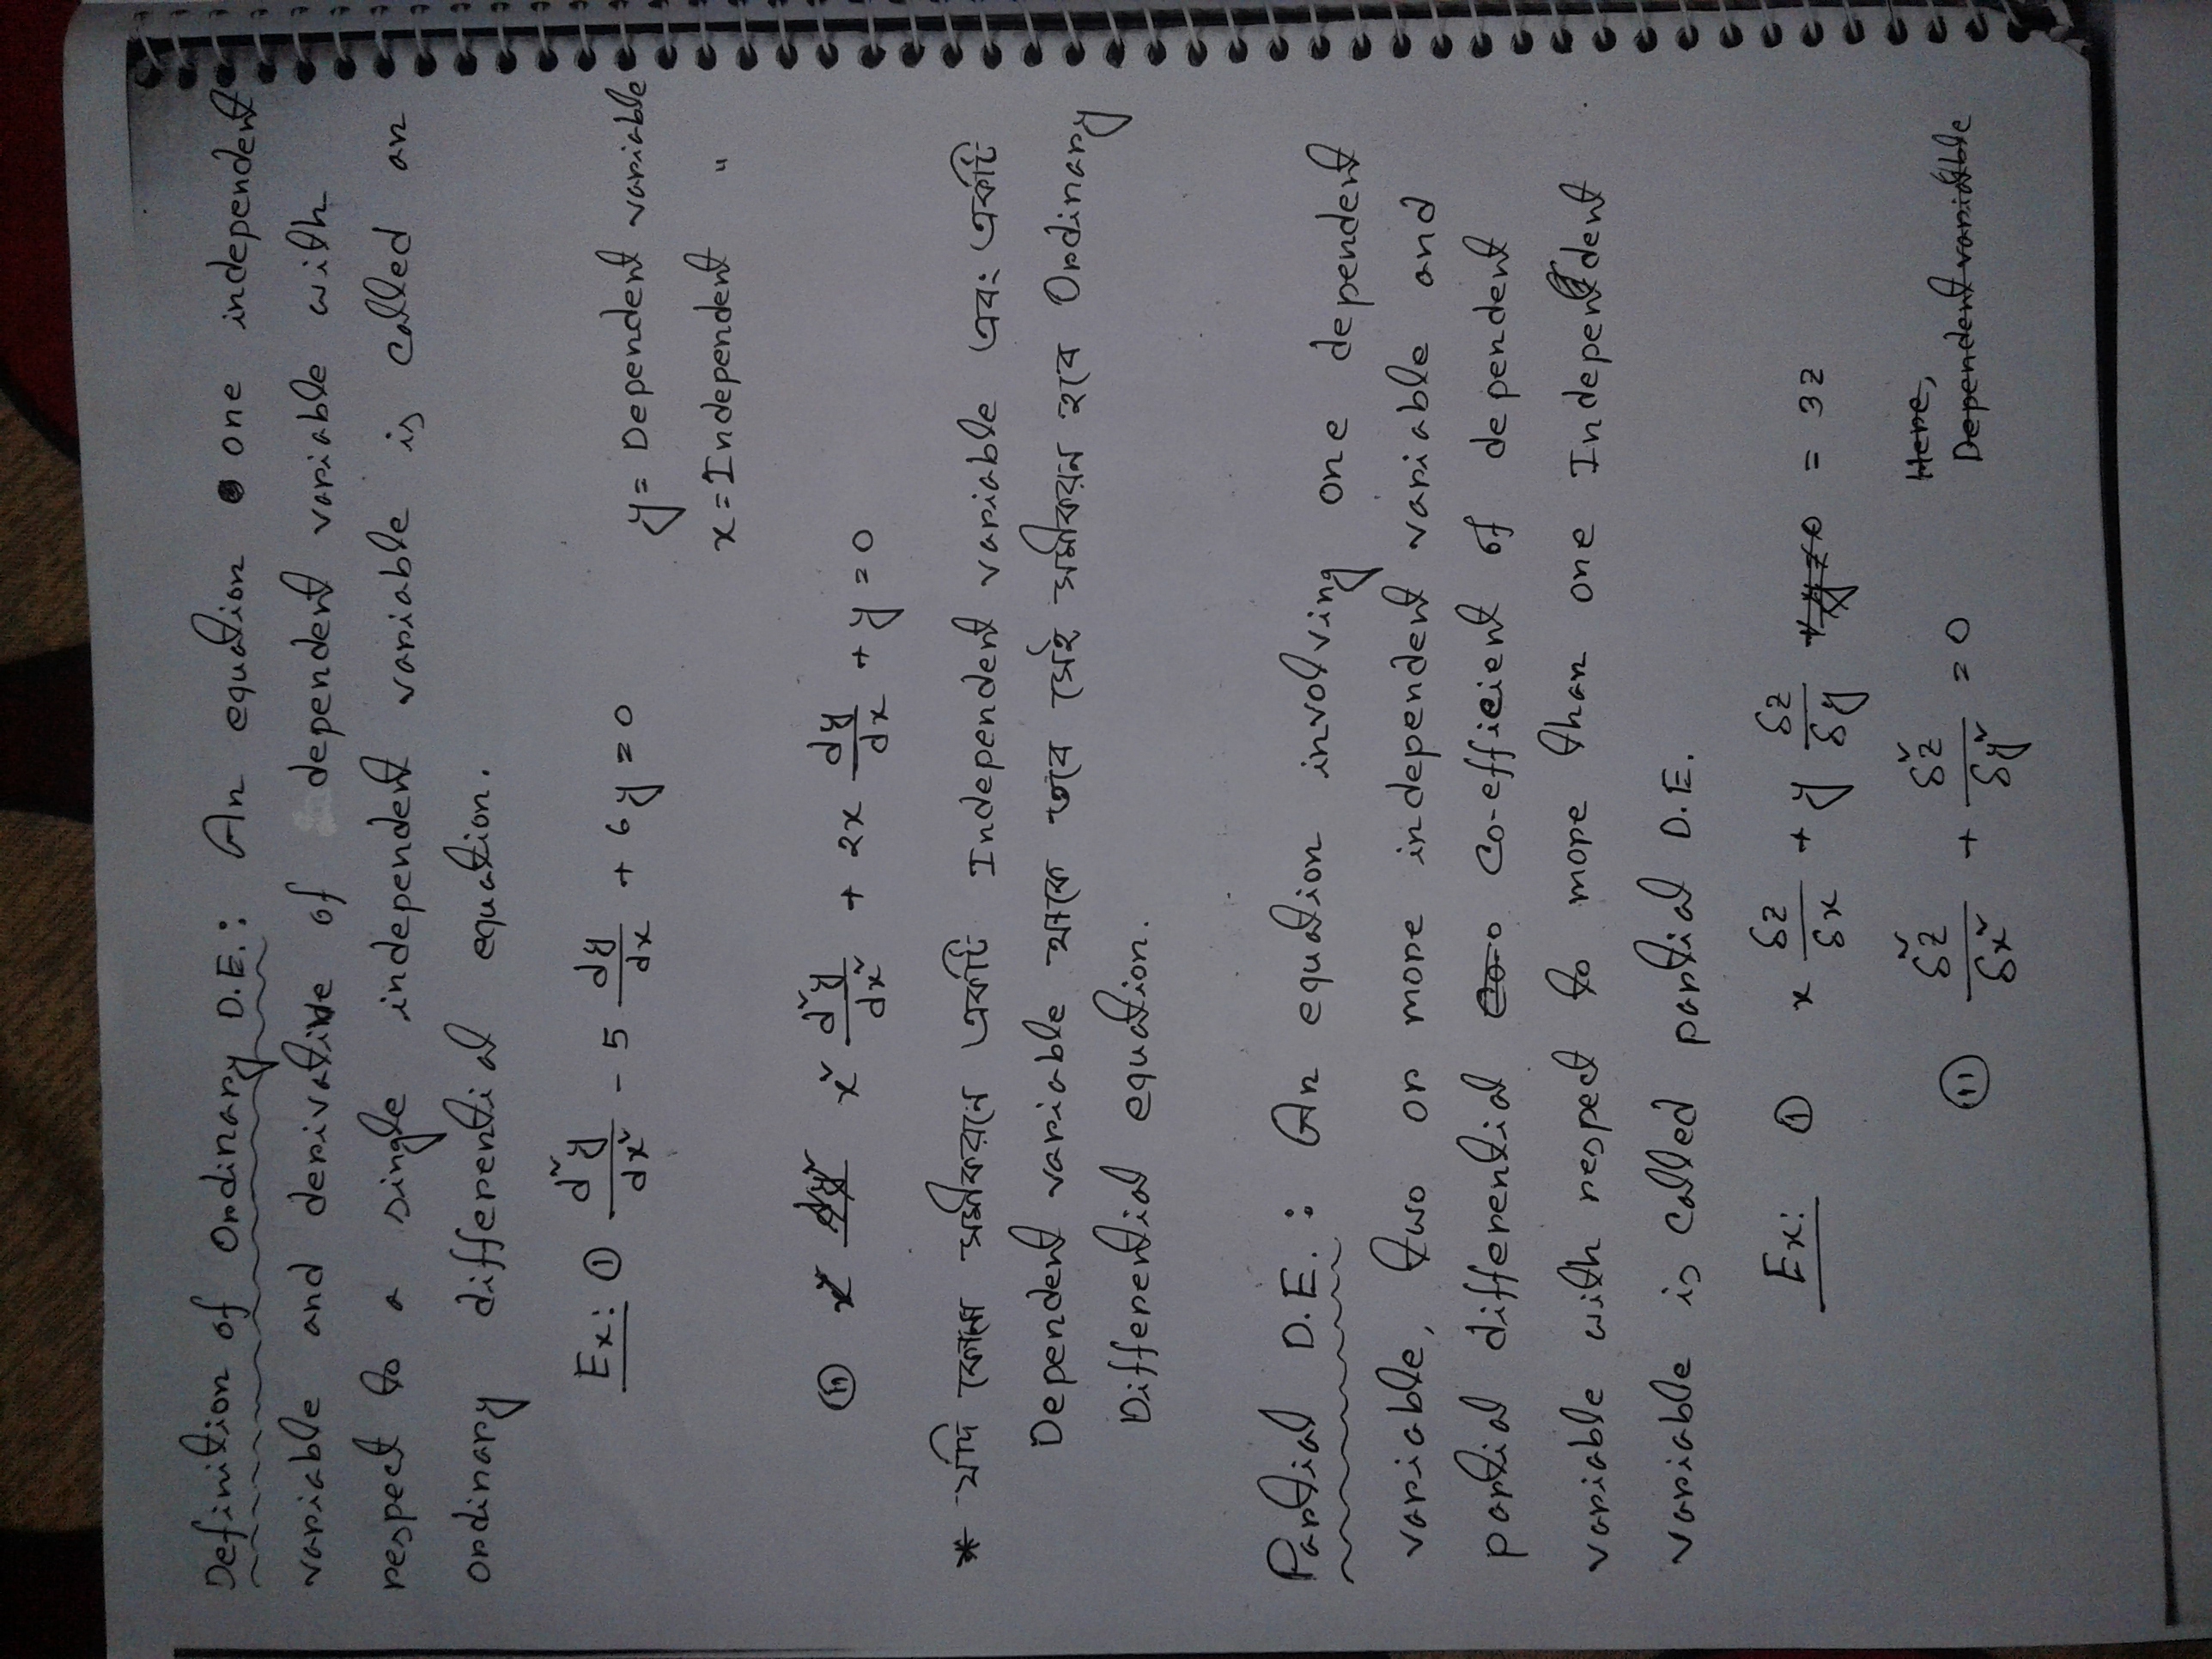 Definition of Ordinary D.E.: An equation one independent
variable and derivative of dependent variable with
respect to a single independent variable is called an
ordinary differential equation.
Ex: ① d²y/dx² - 5 dy/dx + 6y = 0
y = Dependent variable
x = Independent "
⑪ x² d²y/dx² + 2x dy/dx + y = 0
* যদি কোনো সমীকরনে একটি Independent variable এবং একটি
Dependent variable থাকে তবে সেই সমীকরন হবে Ordinary
Differential equation.
Partial D.E. : An equation involving one dependent
variable, two or more independent variable and
partial differential Co-efficient of dependent
variable with respect to more than one Independent
variable is called partial D.E.
Ex: ① x δz/δx + y δz/δy = 3z
⑪ δ²z/δx² + δ²z/δy² = 0
Here,
Dependent variable